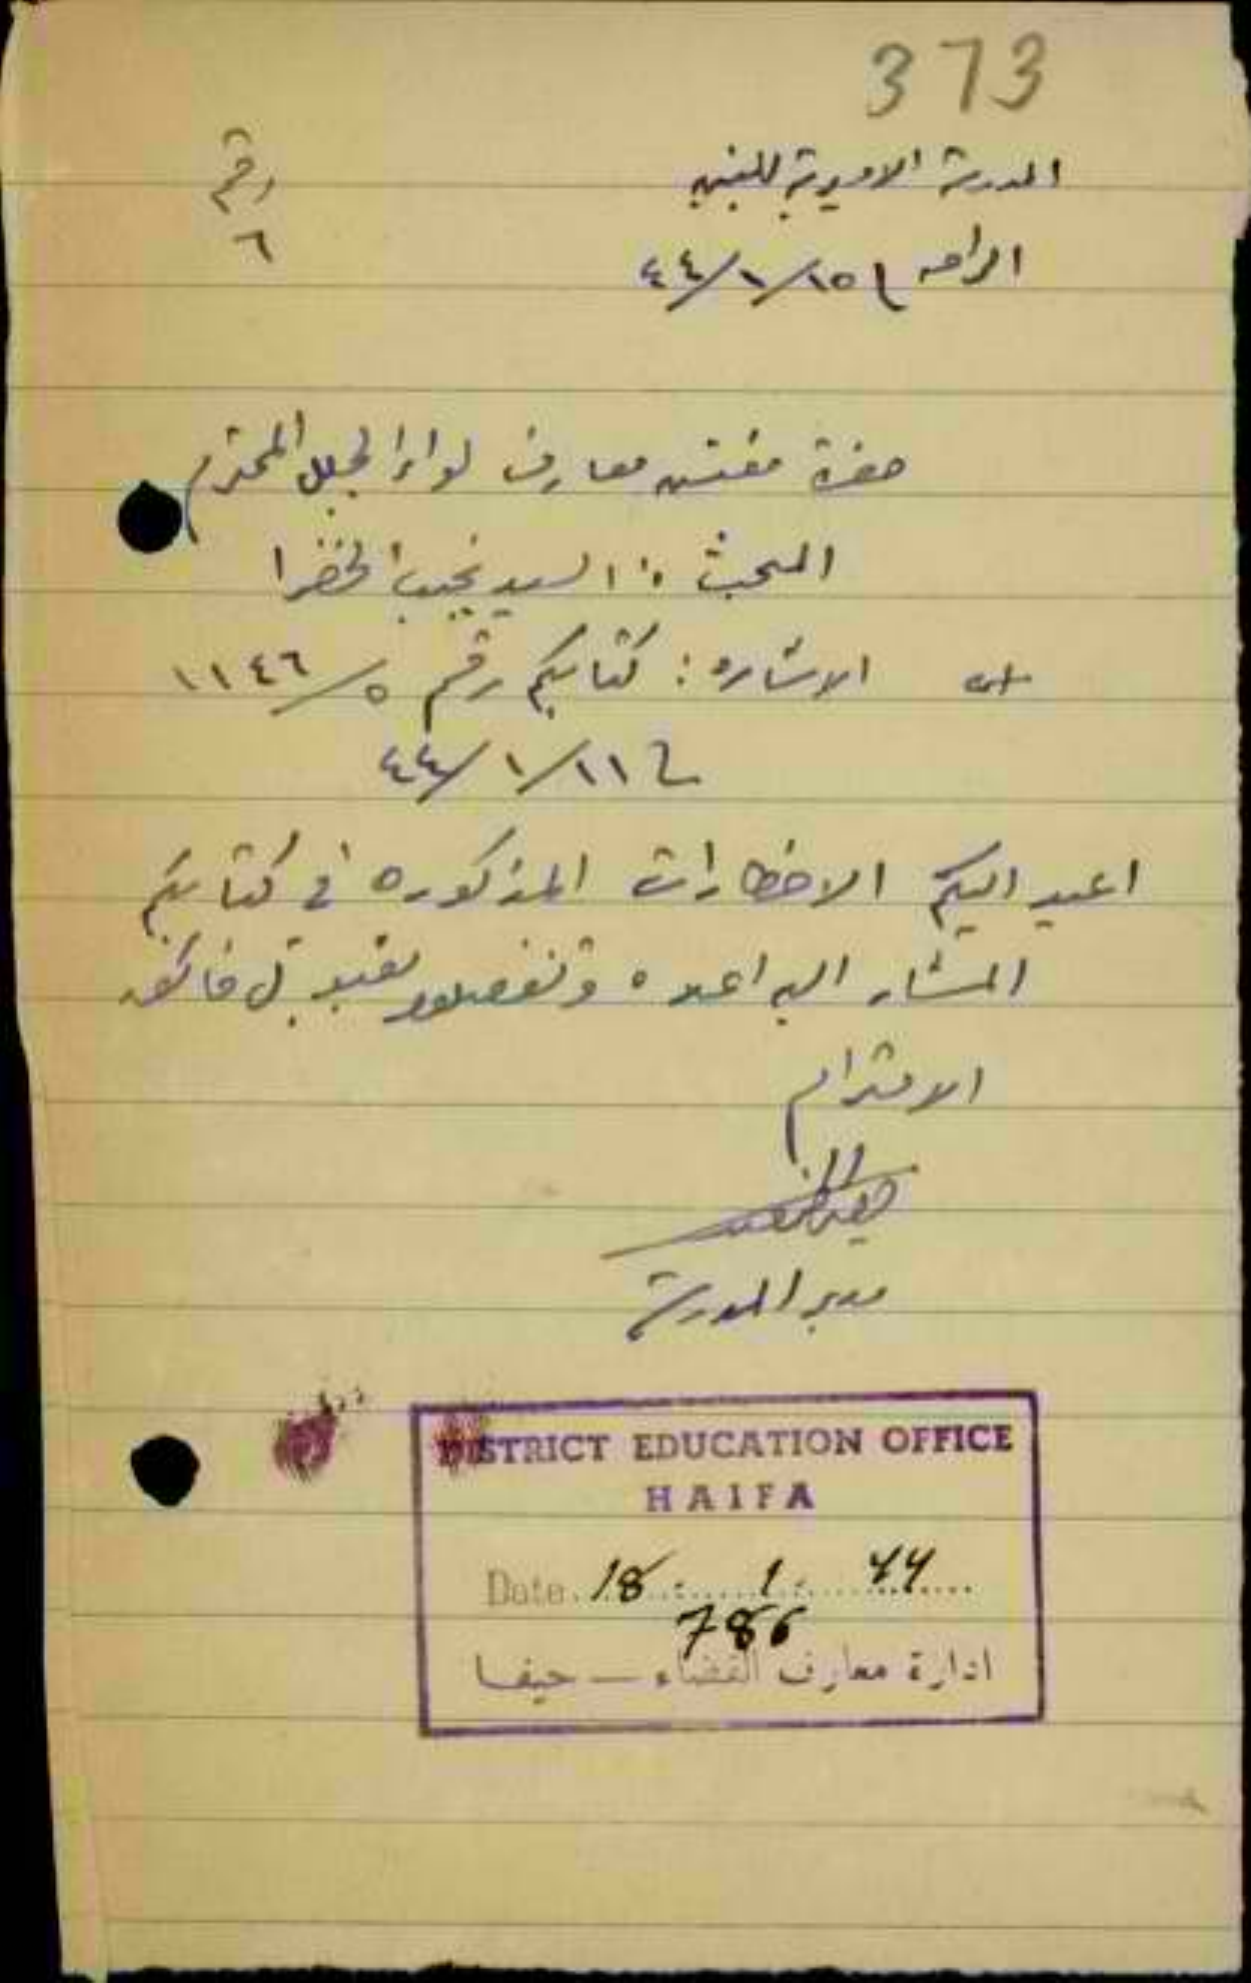 373
المدرسة الاميرية للبنين
رقم
٦
الرامه في ١٥/١/٤٤
حضرة مفتش معارف لواء الجليل المحترم
المبحث :: السيد نجيب الخضرا
الاشاره : كتابكم رقم ٥/١١٤٦
في ١١/١/٤٤
اعيد اليكم الاخطارات المذكوره في كتابكم
المشار اليه اعلاه وتفضلوا بقبول فائق
الاحترام
مدير المدرسة
DISTRICT EDUCATION OFFICE
HAIFA
Date 18 . 1 . 44
786
ادارة معارف القضاء — حيفا